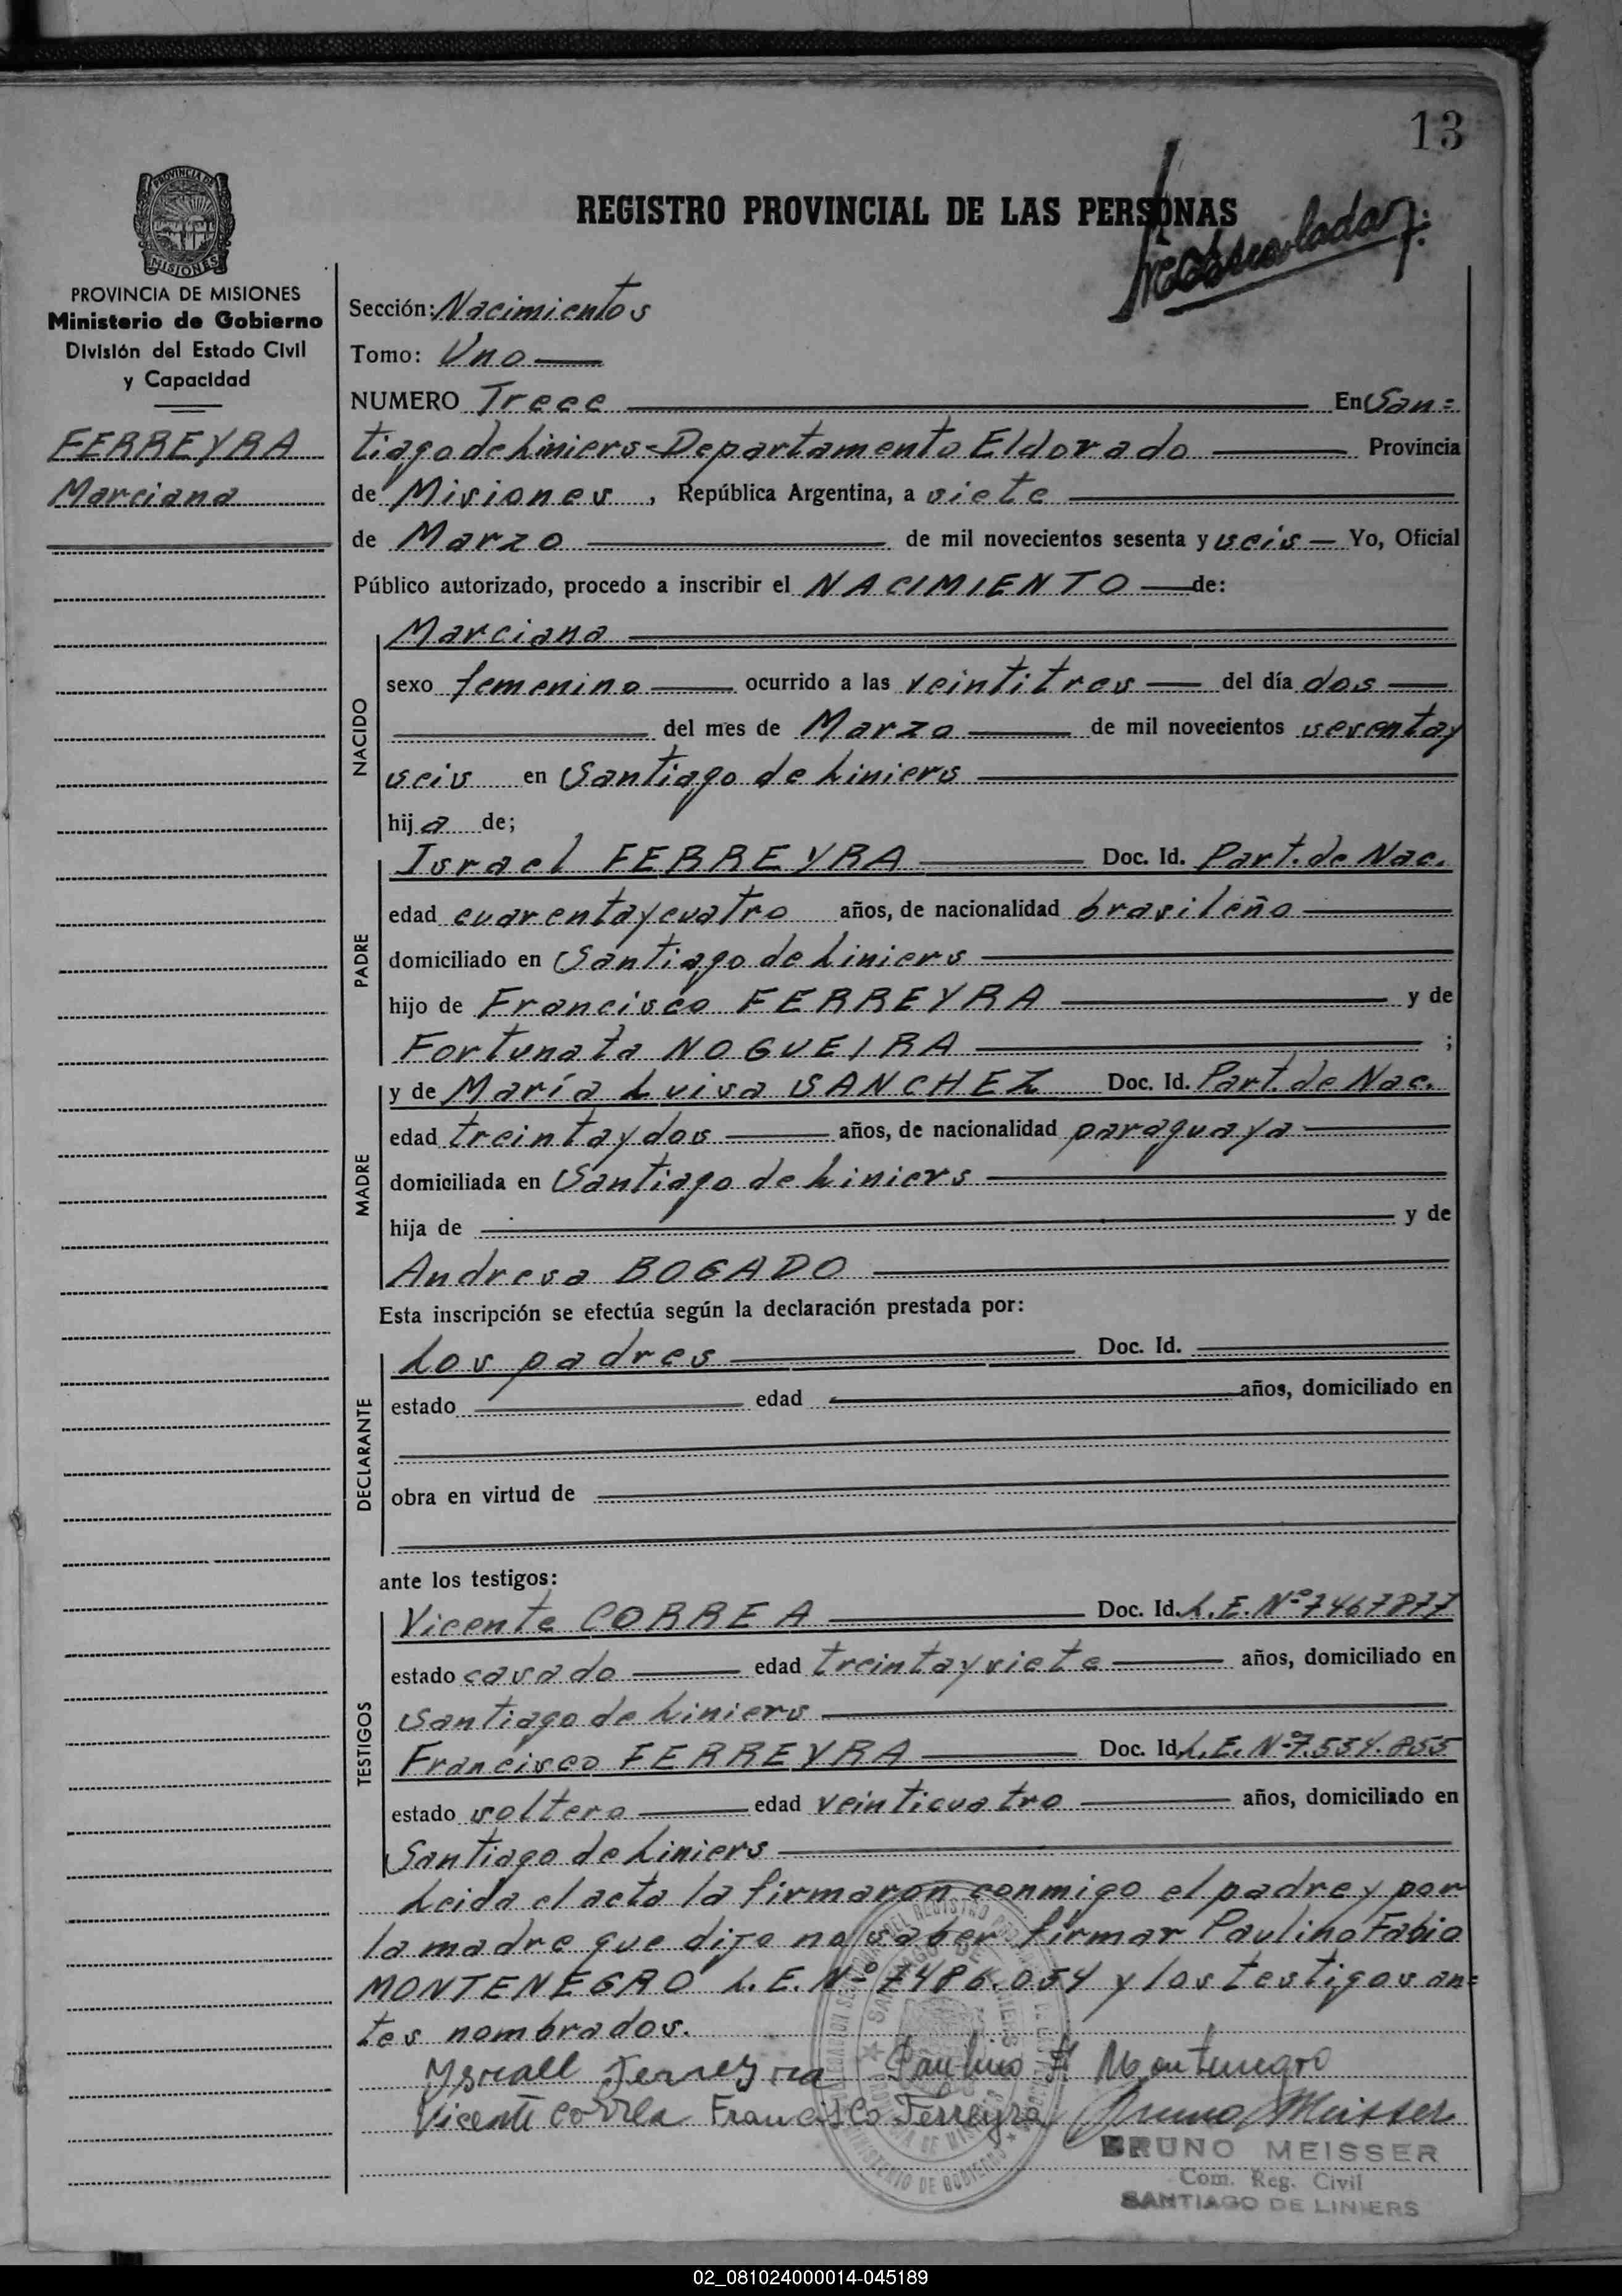 13
PROVINCIA DE
MISIONES
REGISTRO PROVINCIAL DE LAS PERSONAS
PROVINCIA DE MISIONES
Ministerio de Gobierno
División del Estado Civil
y Capacidad
FERREYRA
Marciana
Sección: Nacimientos
Tomo: Uno
NUMERO Trece En San=
tiago de Liniers-Departamento Eldorado Provincia
de Misiones, República Argentina, a siete
de Marzo de mil novecientos sesenta y seis Yo, Oficial
Público autorizado, procedo a inscribir el NACIMIENTO de:
NACIDO
Marciana
sexo femenino ocurrido a las veintitres del día dos
del mes de Marzo de mil novecientos sesenta y
seis en Santiago de Liniers
hija de;
PADRE
Israel FERREYRA Doc. Id. Part. de Nac.
edad cuarenta y cuatro años, de nacionalidad brasileño
domiciliado en Santiago de Liniers
hijo de Francisco FERREYRA y de
Fortunata NOGUEIRA ;
MADRE
y de María Luisa SANCHEZ Doc. Id. Part. de Nac.
edad treinta y dos años, de nacionalidad paraguaya
domiciliada en Santiago de Liniers
hija de y de
Andresa BOGADO
Esta inscripción se efectúa según la declaración prestada por:
DECLARANTE
Los padres Doc. Id.
estado edad años, domiciliado en
obra en virtud de
ante los testigos:
TESTIGOS
Vicente CORREA Doc. Id. L.E. Nº 7467877
estado casado edad treinta y siete años, domiciliado en
Santiago de Liniers
Francisco FERREYRA Doc. Id. L.E. Nº 7.534.855
estado soltero edad veinticuatro años, domiciliado en
Santiago de Liniers
Leida el acta la firmaron conmigo el padre y por
la madre que dijo no saber firmar Paulino Fabio
MONTENEGRO L.E. Nº 7486.054 y los testigos an=
tes nombrados.
Ysrael Ferreyra Paulino F Montenegro
Vicente Correa Francisco Ferreyra Bruno Meisser
BRUNO MEISSER
Com. Reg. Civil
SANTIAGO DE LINIERS
02_081024000014-045189